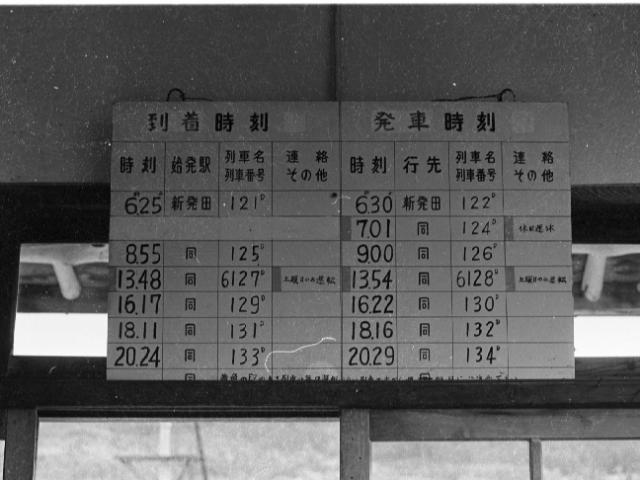 到着時刻 発車時刻
時刻 始発駅 列車名 列車番号 連絡 その他 時刻 行先 列車名 列車番号 連絡 その他
6.25 新発田 121D 6.30 新発田 122D
7.01 同 124D 休日運休
8.55 同 125D 9.00 同 126D
13.48 同 6127D 土曜日のみ運転 13.54 同 6128D 土曜日のみ運転
16.17 同 129D 16.22 同 130D
18.11 同 131D 18.16 同 132D
20.24 同 133D 20.29 同 134D
同 同